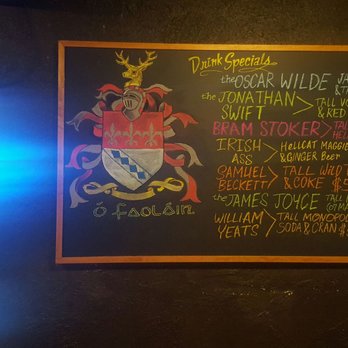 Drink Specials
the OSCAR WILDE
the JONATHAN SWIFT > TALL
& RED
BRAM STOKER >
IRISH ASS > HELLCAT MAGGIE
& GINGER BEER
SAMUEL BECKETT > TALL
& COKE
the JAMES JOYCE > TALL
WILLIAM YEATS > TALL
SODA & CRAN
Ó FAOLÁIN